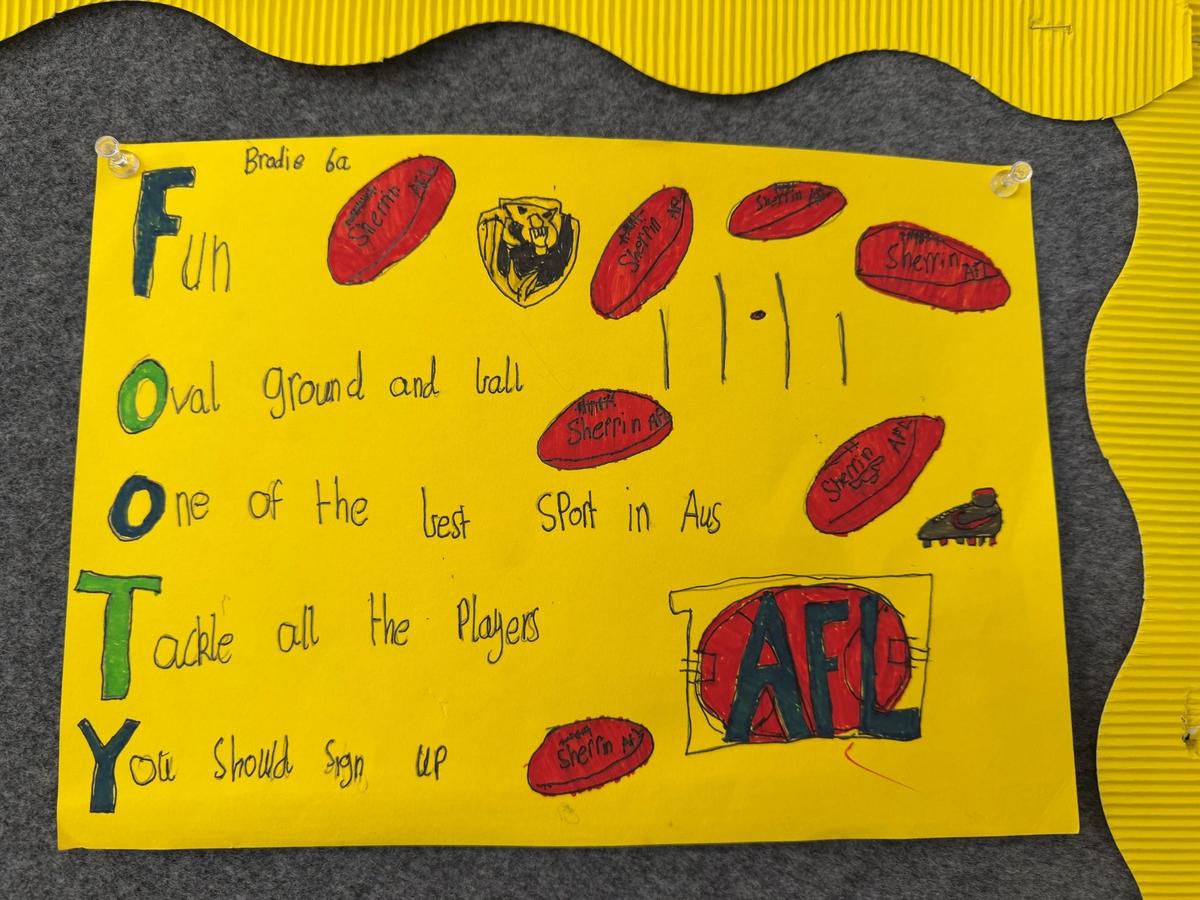 Brodie 6a
Fun
Sherrin AFL
Sherrin AF
Sherrin AFL
Sherrin AFL
Oval ground and ball
Sherrin AFL
Sherrin AFL
One of the best SPort in Aus
Tackle all the Players
AFL
You Should Sign up
Sherrin AFL